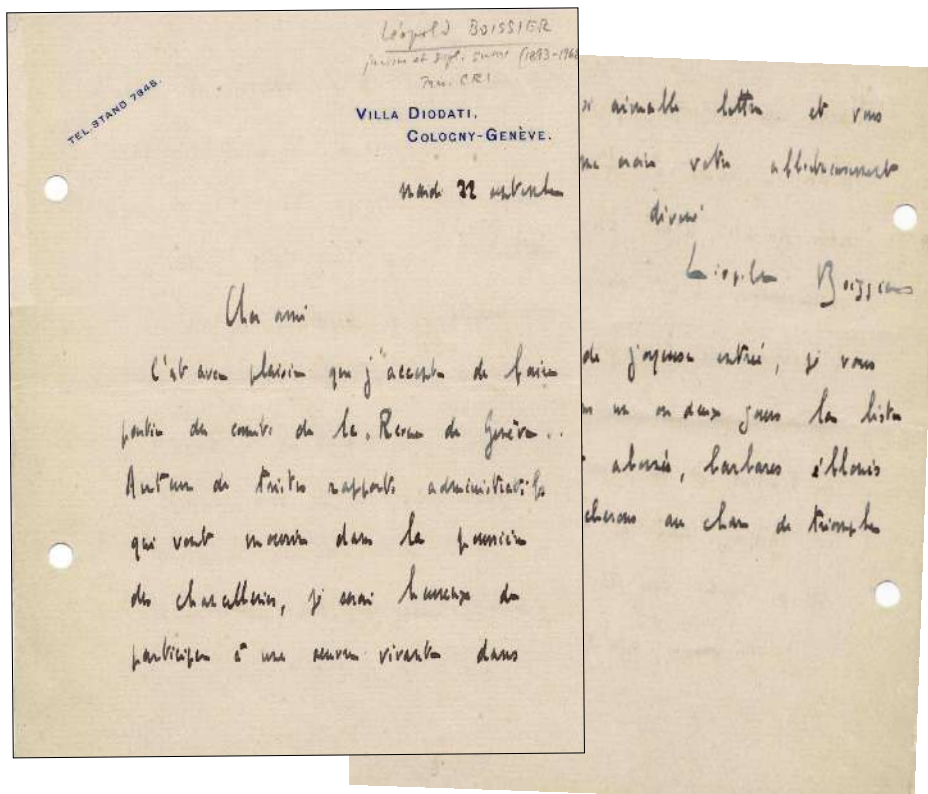 Léopold BOISSIER
juriste et dipl. suisse (1893-1968
CRI
TEL. STAND 7948.
VILLA DIODATI.
COLOGNY-GENÈVE.
mardi 22 septembre
Cher ami
C'est avec plaisir que j'accepte de faire
partie du comité de la "Revue de Genève"..
Auteur de tristes rapports administratifs
qui vont mourir dans la poussière
des chancelleries, je serai heureux de
participer à une œuvre vivante dans
aimable lettre et vous
votre affectueusement
dévoué
Léopold Boissier
de joyeuse entrée, je vous
un ou deux jours la liste
abonnés, barbares éblouis
au char de triomphe